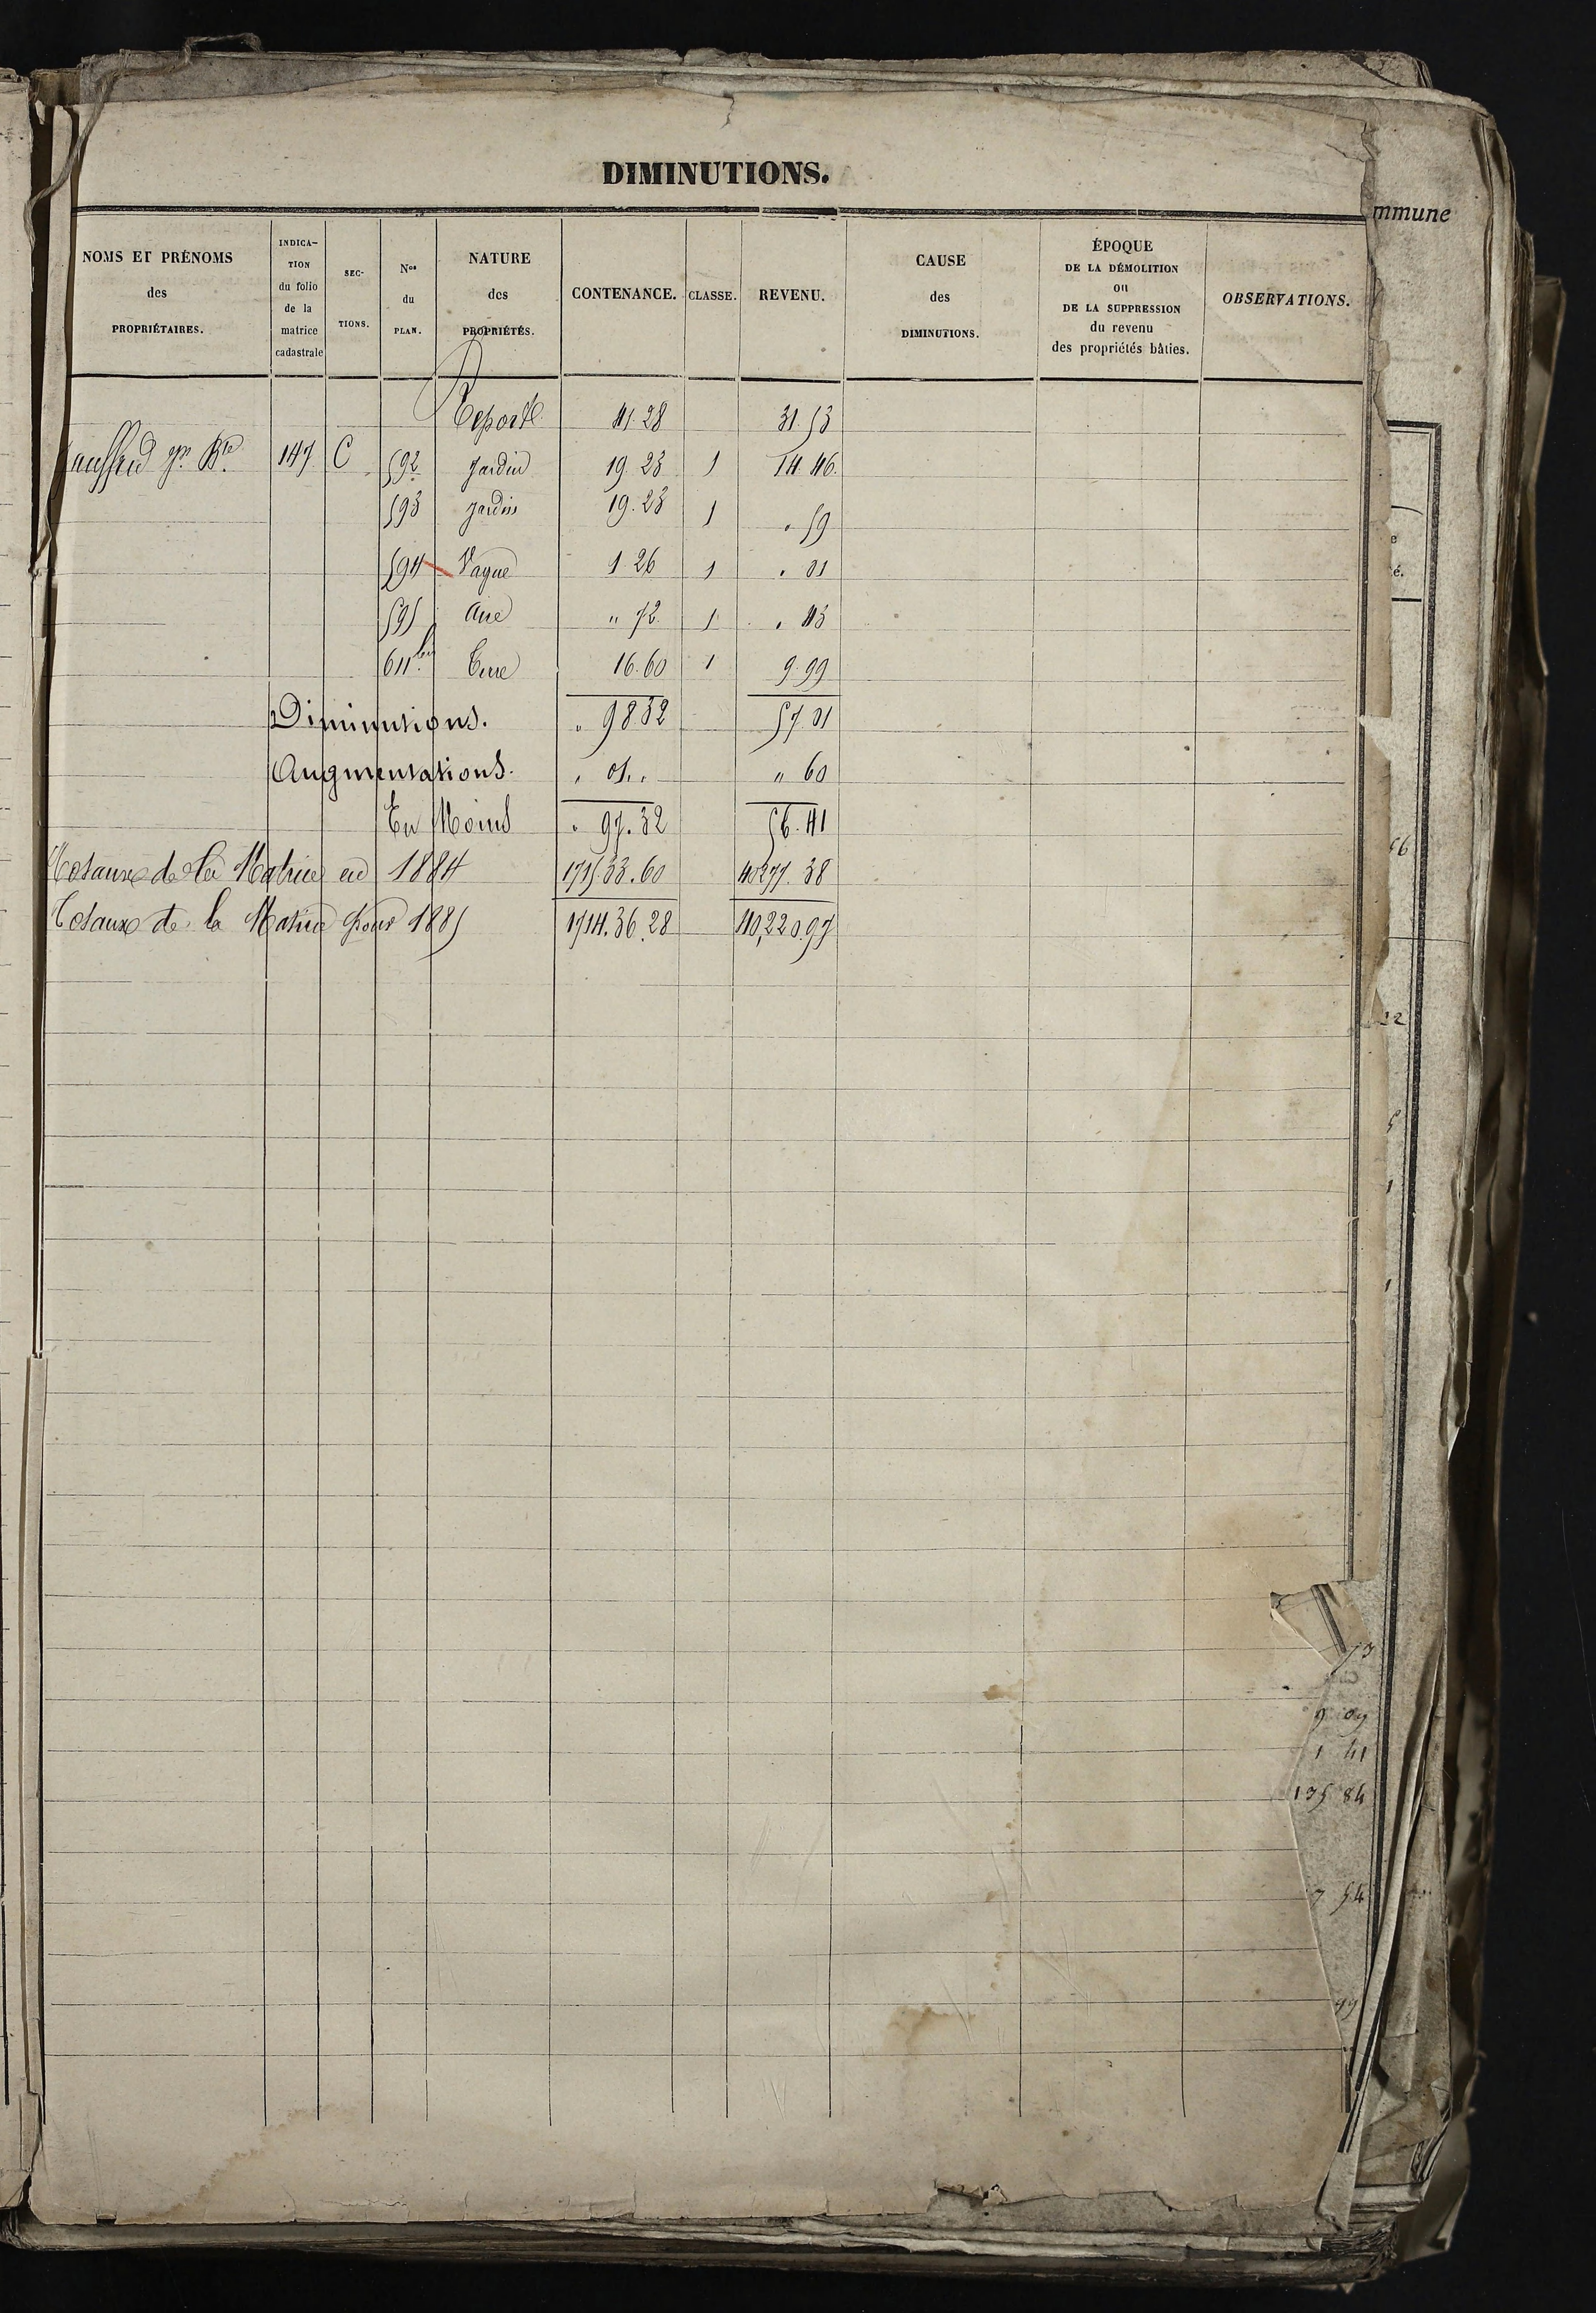 DIMINUTIONS.
NOMS ET PRÉNOMS des PROPRIÉTAIRES.
INDICA- TION du folio de la matrice cadastrale
SEC- TIONS.
Nos du PLAN.
NATURE des PROPRIÉTÉS.
CONTENANCE.
CLASSE.
REVENU.
CAUSE des DIMINUTIONS.
ÉPOQUE DE LA DÉMOLITION ou DE LA SUPPRESSION du revenu des propriétés bâties.
OBSERVATIONS.
mmune
Report 41.28 31.53
147 C 592 Jardin 19.23 1 14.46
593 Jardin 19.23 1 . 59
594 Vague 1 26 1 . 01
595 Aire " 72 1 . 43
611 bis Terre 16.60 1 9.99
Diminutions. . 98.32 57.01
Augmentations. . 01. . " 60
En Moins . 97.32 56.41
Totaux de la Matrice en 1884 1715.33.60 40277.38
Totaux de la Matrice pour 1885 1714.36.28 40,220.97
9 09
1 41
135 84
7 54
99